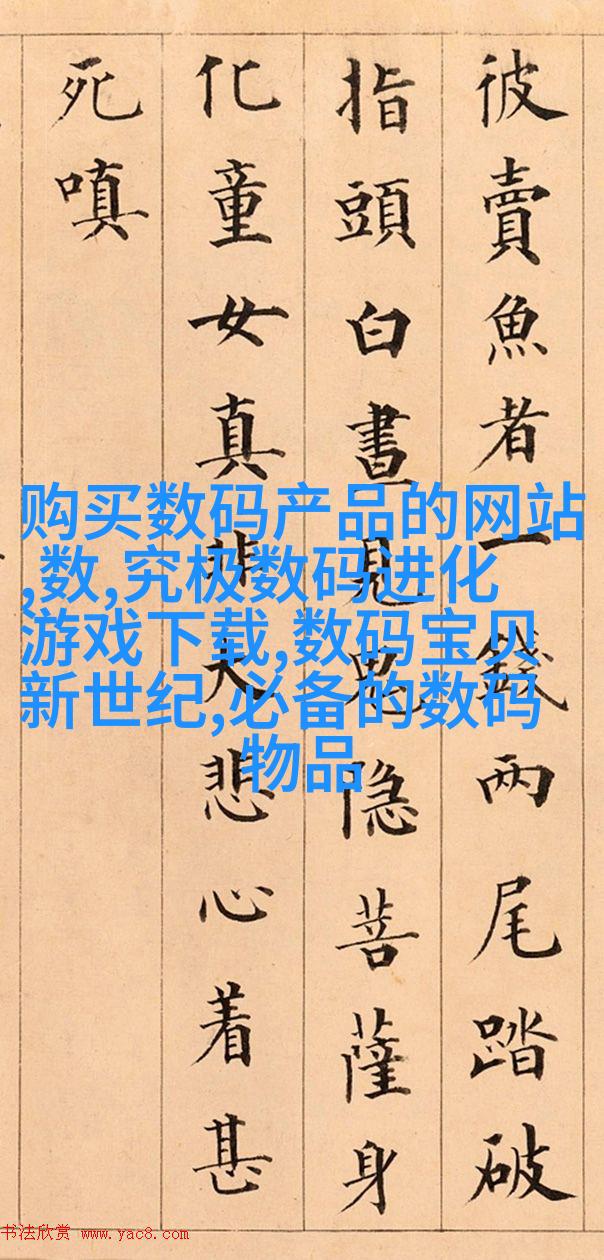 彼賣魚者一錢兩尾踏破
指頭白晝見鬼隐菩薩身
化童女真非大悲心着甚
死嗔
购买数码产品的网站
,数,究极数码进化
游戏下载,数码宝贝
新世纪,必备的数码
物品
书法欣赏 www.yac8.com